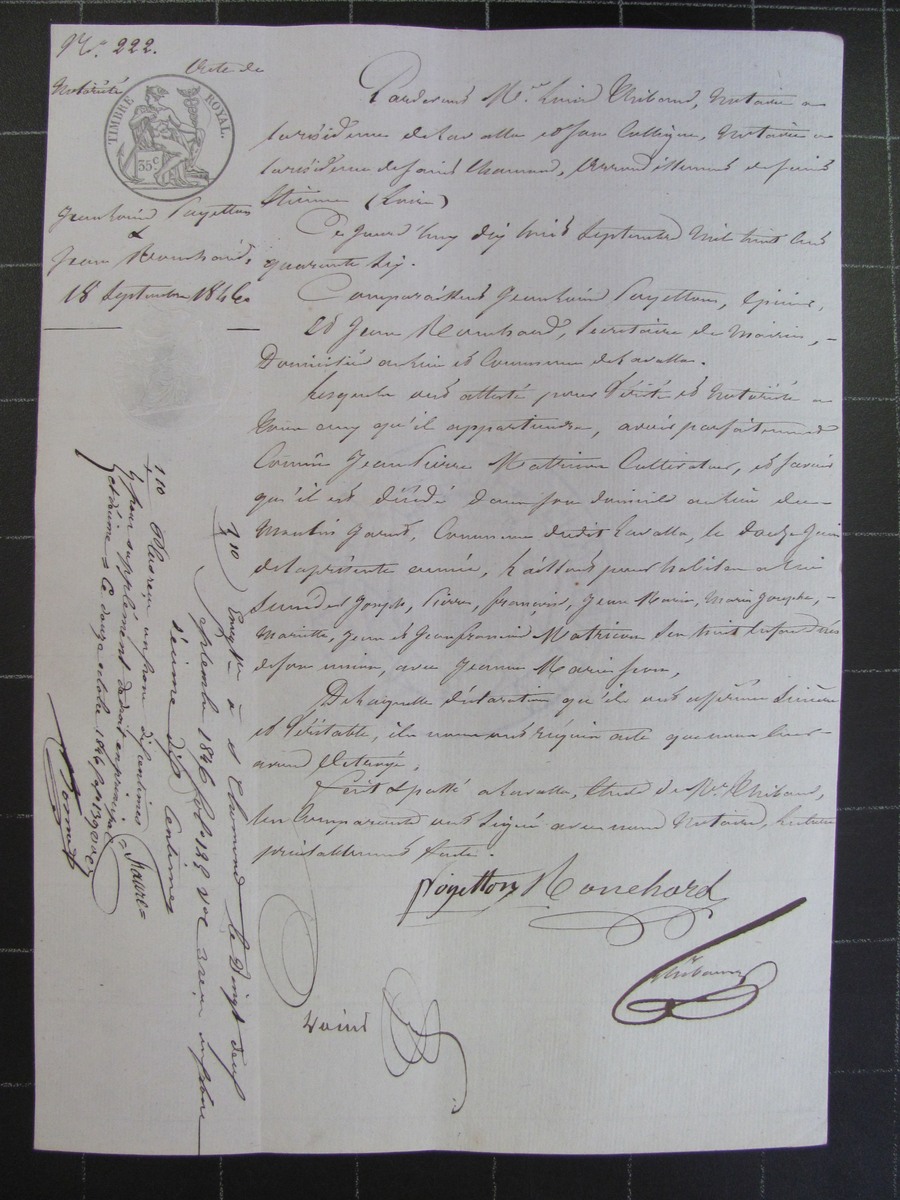 N.° 222.
Acte de
Notoriété
TIMBRE ROYAL.
35c
Jean Louis Poyetton
&
Jean Rouchard,
18 Septembre 1846.
Pardevant M.e Louis Thibaud, Notaire a
la résidence de Lavalla et son Collègue, Notaire a
la résidence de Saint Chamond, Arrondissement de Saint
Etienne (Loire)
Ce jourd'huy dix huit Septembre Mil huit cent
quarante six.
Comparaissent Jean Louis Poyetton, Epicier,
Et Jean Rouchard, Secrétaire de Mairie,
Domiciliés au lieu et Commune de Lavalla.
Lesquels ont attesté pour Vérité et Notoriété a
tous ceux qu'il appartiendra, avoir parfaitement
Connu Jean Pierre Matricon Cultivateur, et savoir
qu'il est décédé dans son domicile au lieu du
Moulin Commune dudit Lavalla, le douze Juin
de la présente année, laissant pour habiles a lui
Succéder Joseph, Pierre, François, Jean Marie, Marie Josephe,
Mariette, Jean et Jean François Matricon Ses huit Enfans
de son union, avec Jeanne Marie
De laquelle déclaration qu'ils ont affirmé Sincère
et Véritable, ils nous ont requis acte que nous leur
avons Octroyé.
Fait & passé a Lavalla, Etude de M.e Thibaud,
les Comparants ont Signé avec nous Notaires, lecture
préalablement faite.
Poyetton Rouchard
Thibaud
Enreg.té à St Chamond le Vingt deux
septembre 1846 fol. 188 Voe
décime dix centimes
Plus reçu un franc dix centimes
pour supplément de droit en principal
et décime le douze octobre 1846